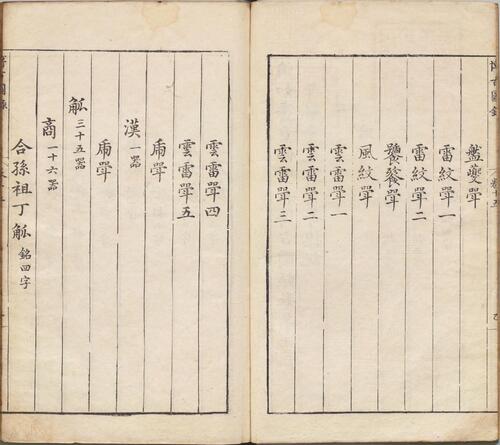 博古圖錄
卷十五
盤夔斝
雷紋斝一
雷紋斝二
饕餮斝
風紋斝
雲雷斝一
雲雷斝二
雲雷斝三
雲雷斝四
雲雷斝五
乕斝
漢一器
乕斝
觚三十五器
商一十六器
合孫祖丁觚銘四字